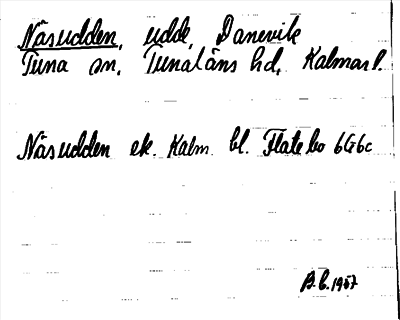 Näsudden, udde, Danevik
Tuna sn, Tunaläns hd, Kalmar l.
Näsudden ek. Kalm. bl. Flatebo 6G6c
B.C. 1957